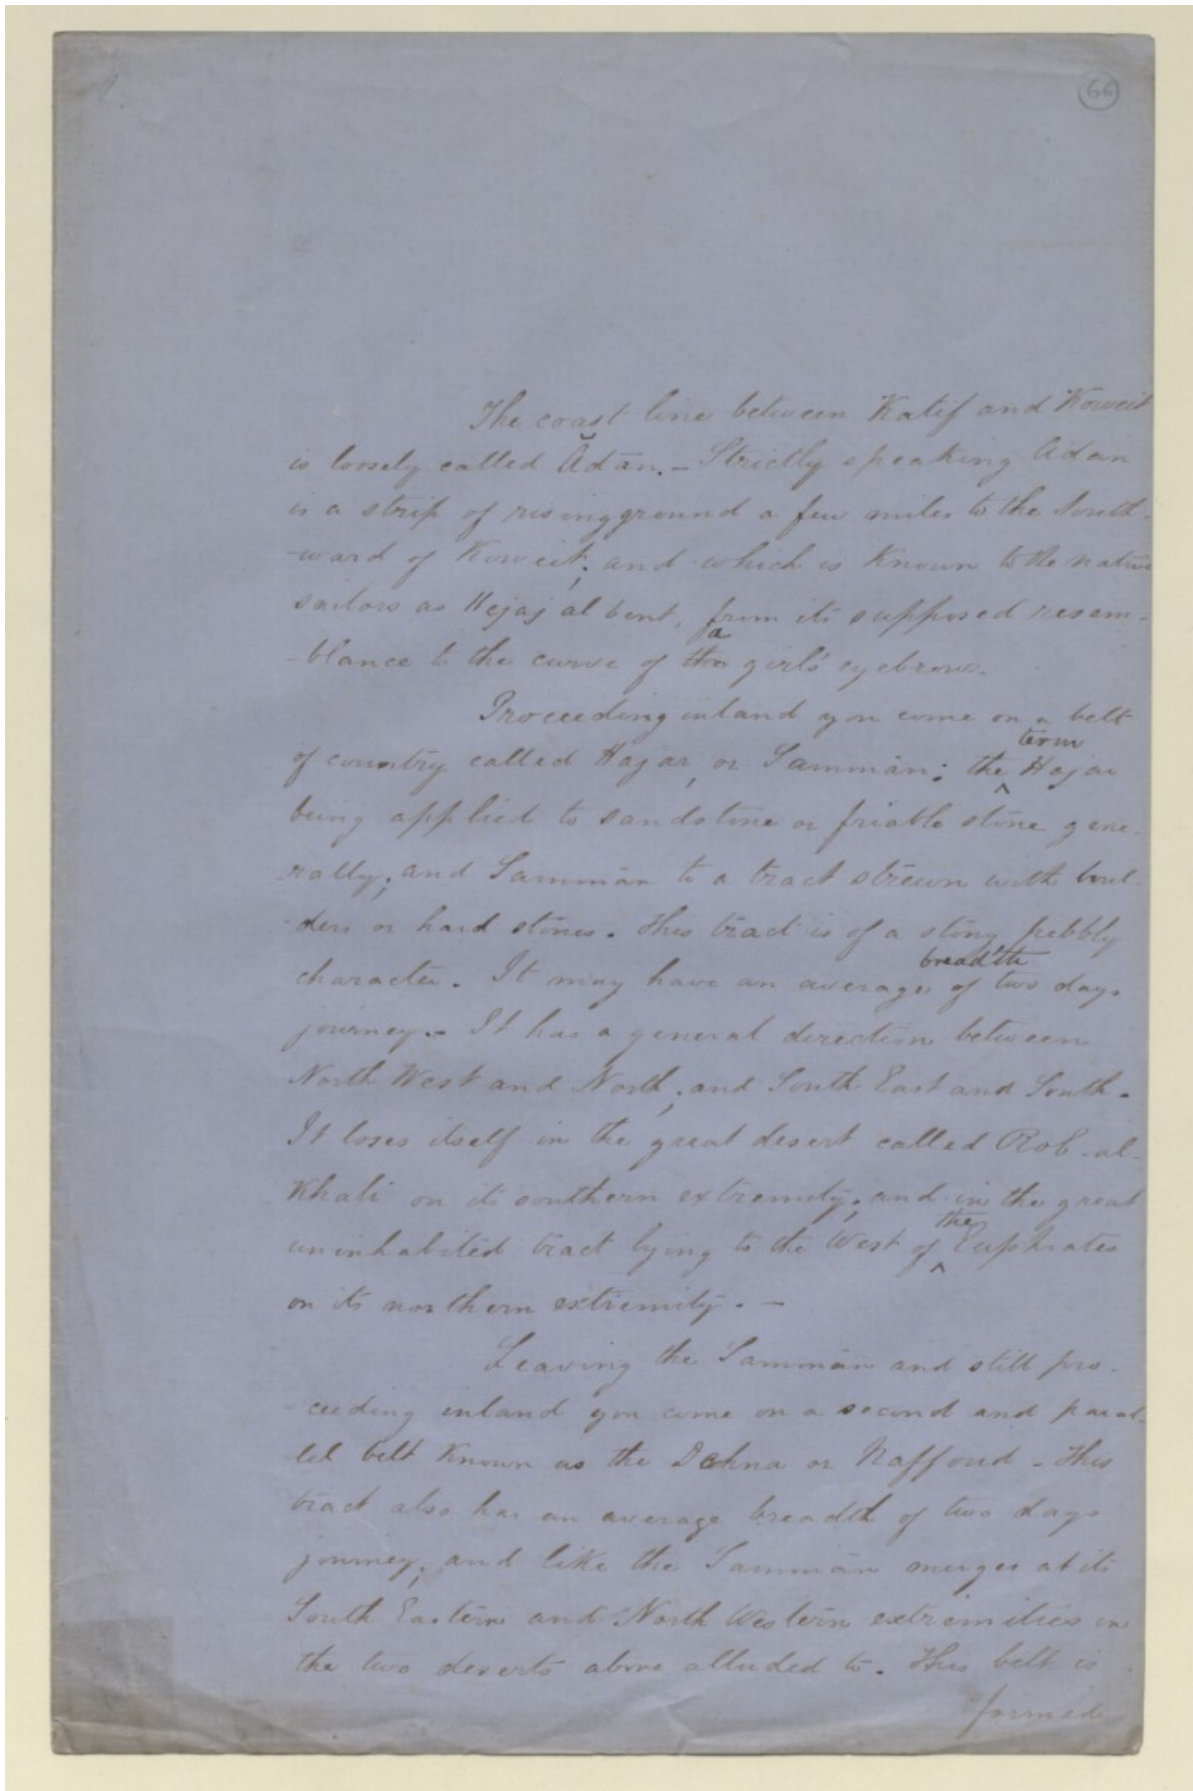 1.
66
The coast line between Katif and Koweit
is loosely called Ădān. – Strictly speaking Adan
is a strip of rising ground a few miles to the South-
-ward of Koweit; and which is Known to the native
sailors as Hejaj al bent, from its supposed resem-
a
-blance to the curve of the girls' eyebrow.
Proceeding inland you come on a belt
term
of country called Hajar, or Sammān; the ^ Hajar
being applied to sandstone or friable stone gene-
-rally; and Sammān to a tract strewn with boul-
-ders or hard stones. This tract is of a stony pebbly
breadth
character. It may have an average of two days
journey. – It has a general direction between
North West and North; and South East and South.
It loses itself in the great desert called Rob-al-
Khali on its southern extremity; and in the great
the
uninhabited tract lying to the West of ^ Euphrates
on its northern extremity. –
Leaving the Sammān and still pro-
-ceeding inland you come on a second and paral-
lel belt Known as the Dehna or Naffoud – This
tract also has an average breadth of two days
journey; and like the Sammān merges at its
South Eastern and North Western extremities in
the two deserts above alluded to. This belt is
formed